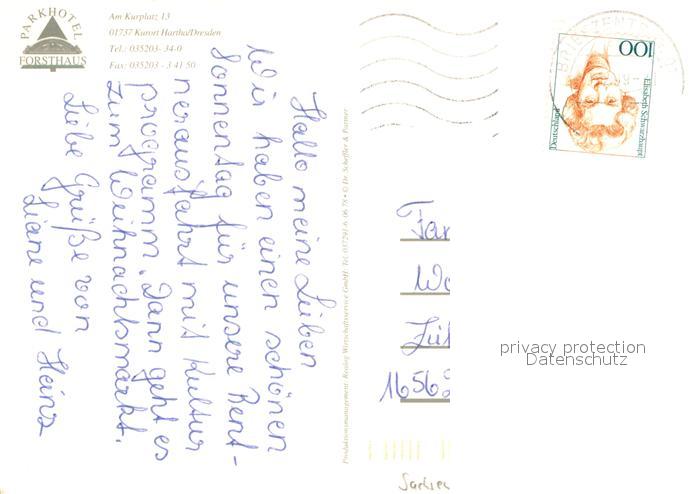 PARKHOTEL
FORSTHAUS
Am Kurplatz 13
01737 Kurort Hartha/Dresden
Tel.: 035203- 34-0
Fax: 035203 - 3 41 50
Hallo meine Lieben
Wir haben einen schönen
Sonnentag für unsere Rent-
nerausfahrt mit Kultur
programm. Dann geht es
zum Weihnachtsmarkt.
Liebe Grüße von
Liane und Heinz
Produktionsmanagement: Reslog Wirtschaftsservice GmbH
© Dr. Scheffler & Partner
BRIEFZENTRUM
100
Elisabeth Schwarzhaupt
Deutschland
Fam
Wo
1656
Sachsen
privacy protection
Datenschutz